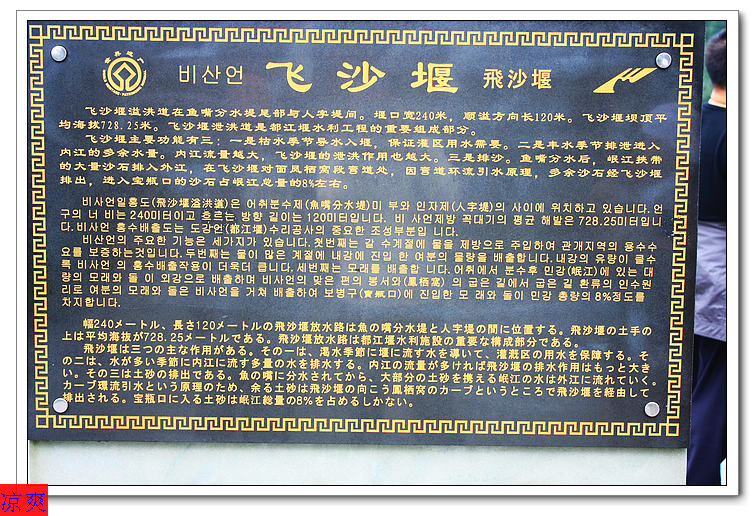 비산언 飞沙堰 飛沙堰
飞沙堰溢洪道在鱼嘴分水堤尾部与人字堤间。堰口宽240米，顺溢方向长120米。飞沙堰坝顶平
均海拔728.25米。飞沙堰泄洪道是都江堰水利工程的重要组成部分。
飞沙堰主要功能有三：一是枯水季节导水入堰，保证灌区用水需要。二是丰水季节排泄进入
内江的多余水量。内江流量越大，飞沙堰的泄洪作用也越大。三是排沙。鱼嘴分水后，岷江挟带
的大量沙石排入外江，在飞沙堰对面凤栖窝段弯道处，因弯道环流引水原理，多余沙石经飞沙堰
排出，进入宝瓶口的沙石占岷江总量的8%左右。
비사언일홍도(飛沙堰溢洪道)은 어취분수제(魚嘴分水堤)미 부와 인자제(人字堤)의 사이에 위치하고 있습니다.언
구의 너 비는 240미터이고 흐르는 방향 길이는 120미터입니다. 비 사언제방 꼭대기의 평균 해발은 728.25미터입니
다. 비사언 홍수배출도는 도강언(都江堰)수리공사의 중요한 조성부분입 니다.
비산언의 주요한 기능은 세가지가 있습니다.첫번째는 갈 수계절에 물을 제방으로 주입하여 관개지역의 용수수
요를 보증하는것입니다.두번째는 물이 많은 계절에 내강에 진입 한 여분의 물량을 배출합니다.내강의 유량이 클수
록 비사언 의 홍수배출작용이 더욱더 큽니다.세번째는 모래를 배출합 니다.어취에서 분수후 민강(岷江)에 있는 대
량의 모래와 돌 이 외강으로 배출하며 비사언의 맞은 편의 봉서와(鳳栖窩) 의 굽은 길에서 굽은 길 환류의 인수원
리로 여분의 모래와 돌은 비사언을 거쳐 배출하여 보병구(寶瓶口)에 진입한 모 래와 돌이 민강 총량의 8%정도를
차지합니다.
幅240メートル、長さ120メートルの飛沙堰放水路は魚の嘴分水堤と人字堤の間に位置する。飛沙堰の土手の
上は平均海抜が728.25メートルである。飛沙堰放水路は都江堰水利施設の重要な構成部分である。
飛沙堰は三つの主な作用がある。その一は、渇水季節に堰に流す水を導いて、灌漑区の用水を保障する。そ
の二は、水が多い季節に内江に流す多量の水を排水する。内江の流量が多ければ飛沙堰の排水作用はもっと大き
い。その三は土砂の排出である。魚の嘴に分水されてから、大部分の土砂を携える岷江の水は外江に流れていく。
カーブ環流引水という原理のため、余る土砂は飛沙堰の向こう鳳栖窩のカーブというところで飛沙堰を経由して
排出される。宝瓶口に入る土砂は岷江総量の8%を占めるしかない。
凉爽